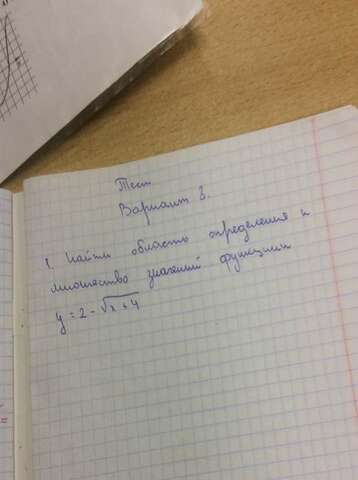 Тест
Вариант 3.
1. Найти область определения и
множество значений функции
y = 2 - √x + 4